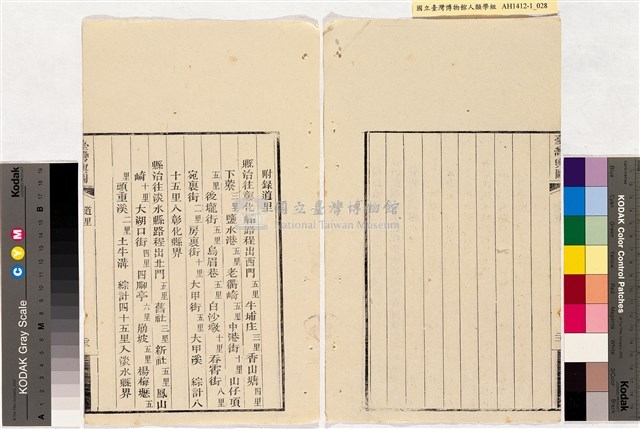 國立臺灣博物館人類學組 AH1412-1_028
臺灣輿圖
附錄道里
縣治往彰化縣路程出西門五里牛埔庄三里香山塘四里
下藔三里鹽水港五里老衢崎五里中港街十里山仔頂
五里後壠街五里烏眉巷五里白沙墩十里吞霄街八里
宛裏街二里房裏街十里大甲街五里大甲溪 綜計八
十五里入彰化縣界
縣治往淡水縣路程出北門五里舊社三里新社五里鳳山
崎十里大湖口街四里四腳亭六里崩坡五里楊梅壢五
里頭重溪二里土牛溝 綜計四十五里入淡水縣界
臺灣輿圖
道里
國立臺灣博物館
National Taiwan Museum
Kodak
KODAK Gray Scale
C Y M
A 1 2 3 4 5 6 M 8 9 10 11 12 13 14 15 B 17 18 19
KODAK Color Control Patches
Kodak